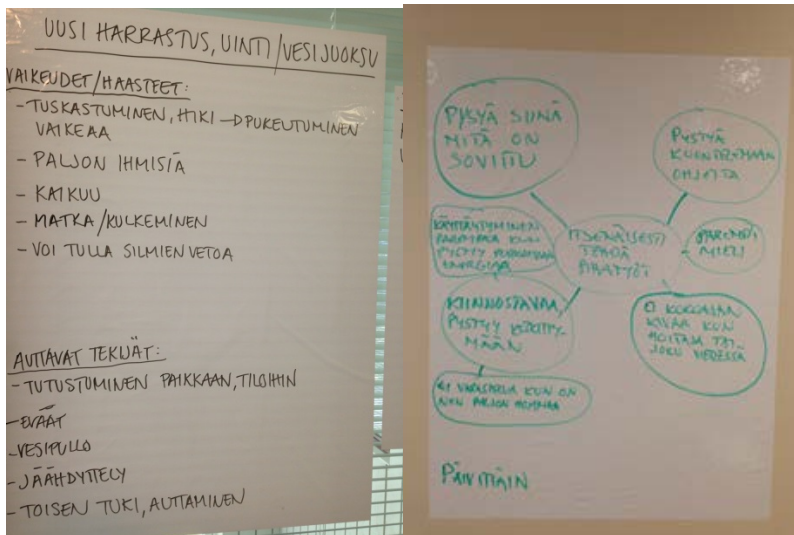 UUSI HARRASTUS, UINTI/VESIJUOKSU
VAIKEUDET/HAASTEET:
- TUSKASTUMINEN, HIKI → PUKEUTUMINEN
VAIKEAA
- PALJON IHMISIÄ
- KAIKUU
- MATKA/KULKEMINEN
- VOI TULLA SILMIEN VETOA
AUTTAVAT TEKIJÄT:
- TUTUSTUMINEN PAIKKAAN, TILOIHIN
- EVÄÄT
- VESIPULLO
- JÄÄHDYTTELY
- TOISEN TUKI, AUTTAMINEN
PYSYÄ SIINÄ
MITÄ ON
SOVITTU
PYSTYÄ
KUUNTELEMAAN
OHJEITA
KÄYTTÄYTYMINEN
PAREMPAA KUN
PYSTYY PURKAMAAN
ENERGIAA
ITSENÄISESTI
TEHDÄ
PAREMPI
MIELI
KIINNOSTAVAA,
PYSTYY KESKITTY-
MÄÄN
EI KOKOAJAN
KIVAA KUN
JOKU VIERESSÄ
KUN ON
NIIN PALJON
PÄIVITTÄIN